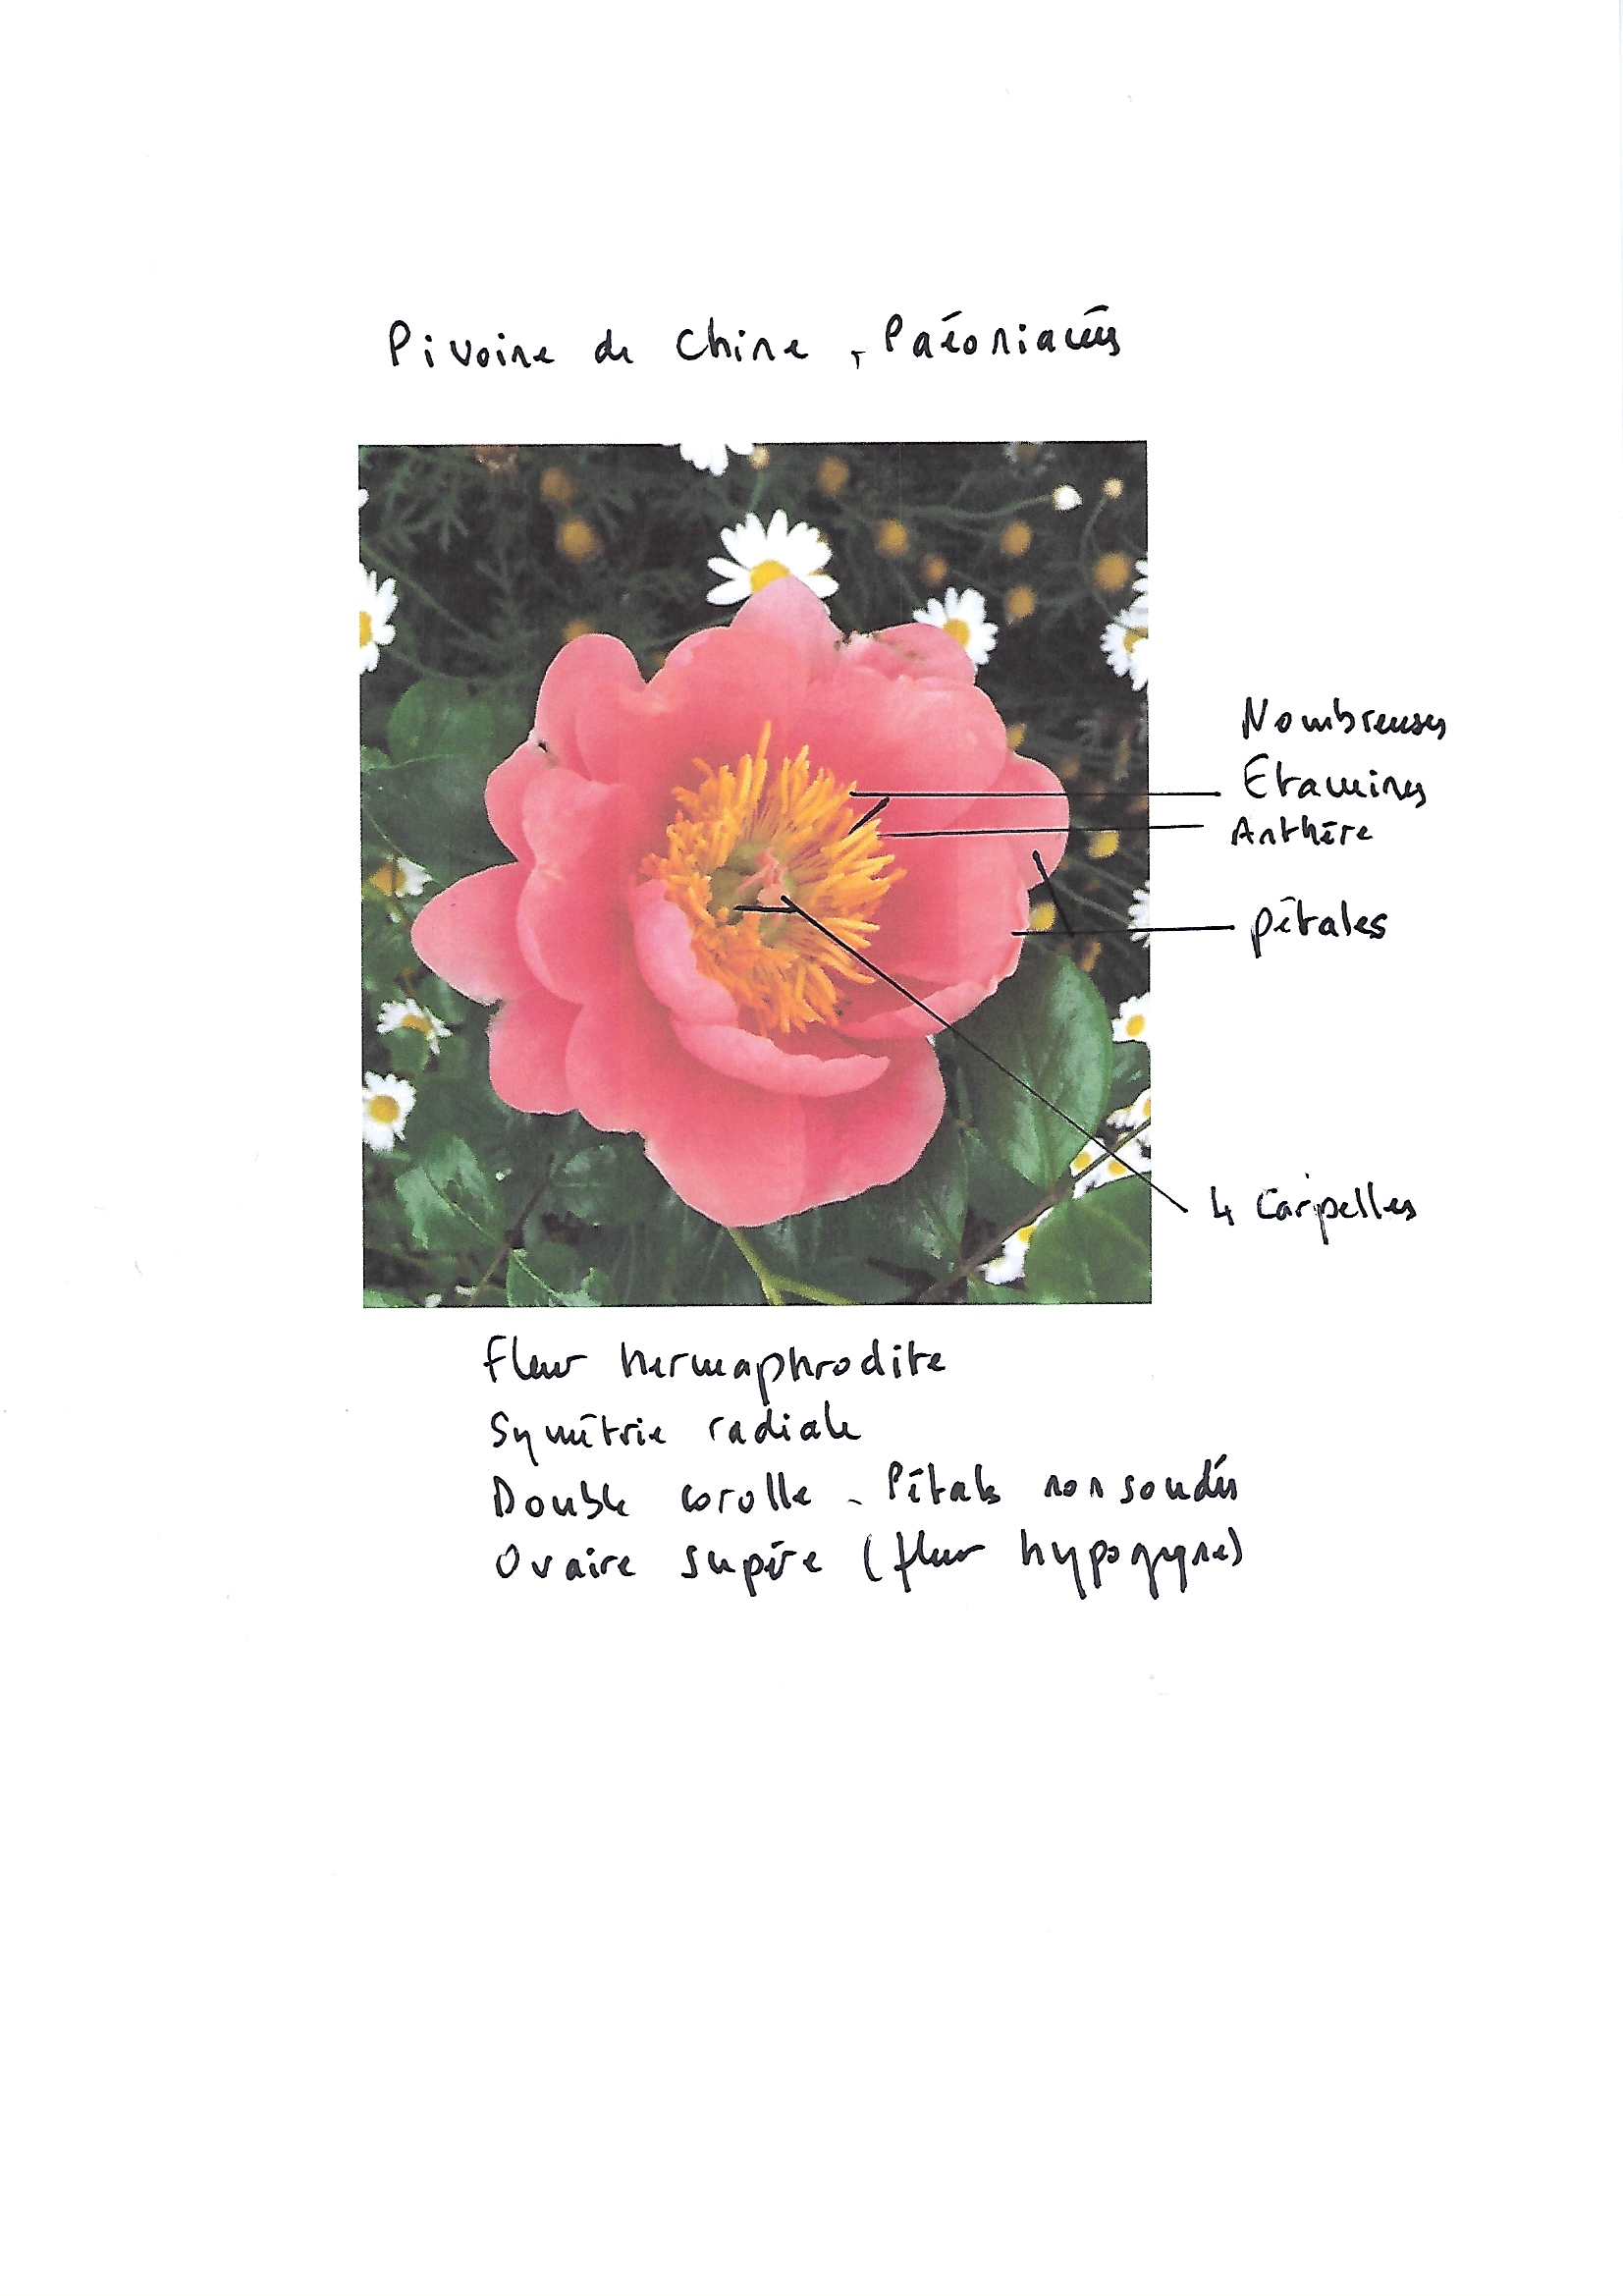 Pivoine de Chine, Paéoniacées
Nombreuses
Etamines
Anthère
pétales
4 Carpelles
fleur hermaphrodite
Symétrie radiale
Double corolle - Pétales non soudés
Ovaire supère (fleur hypogyne)